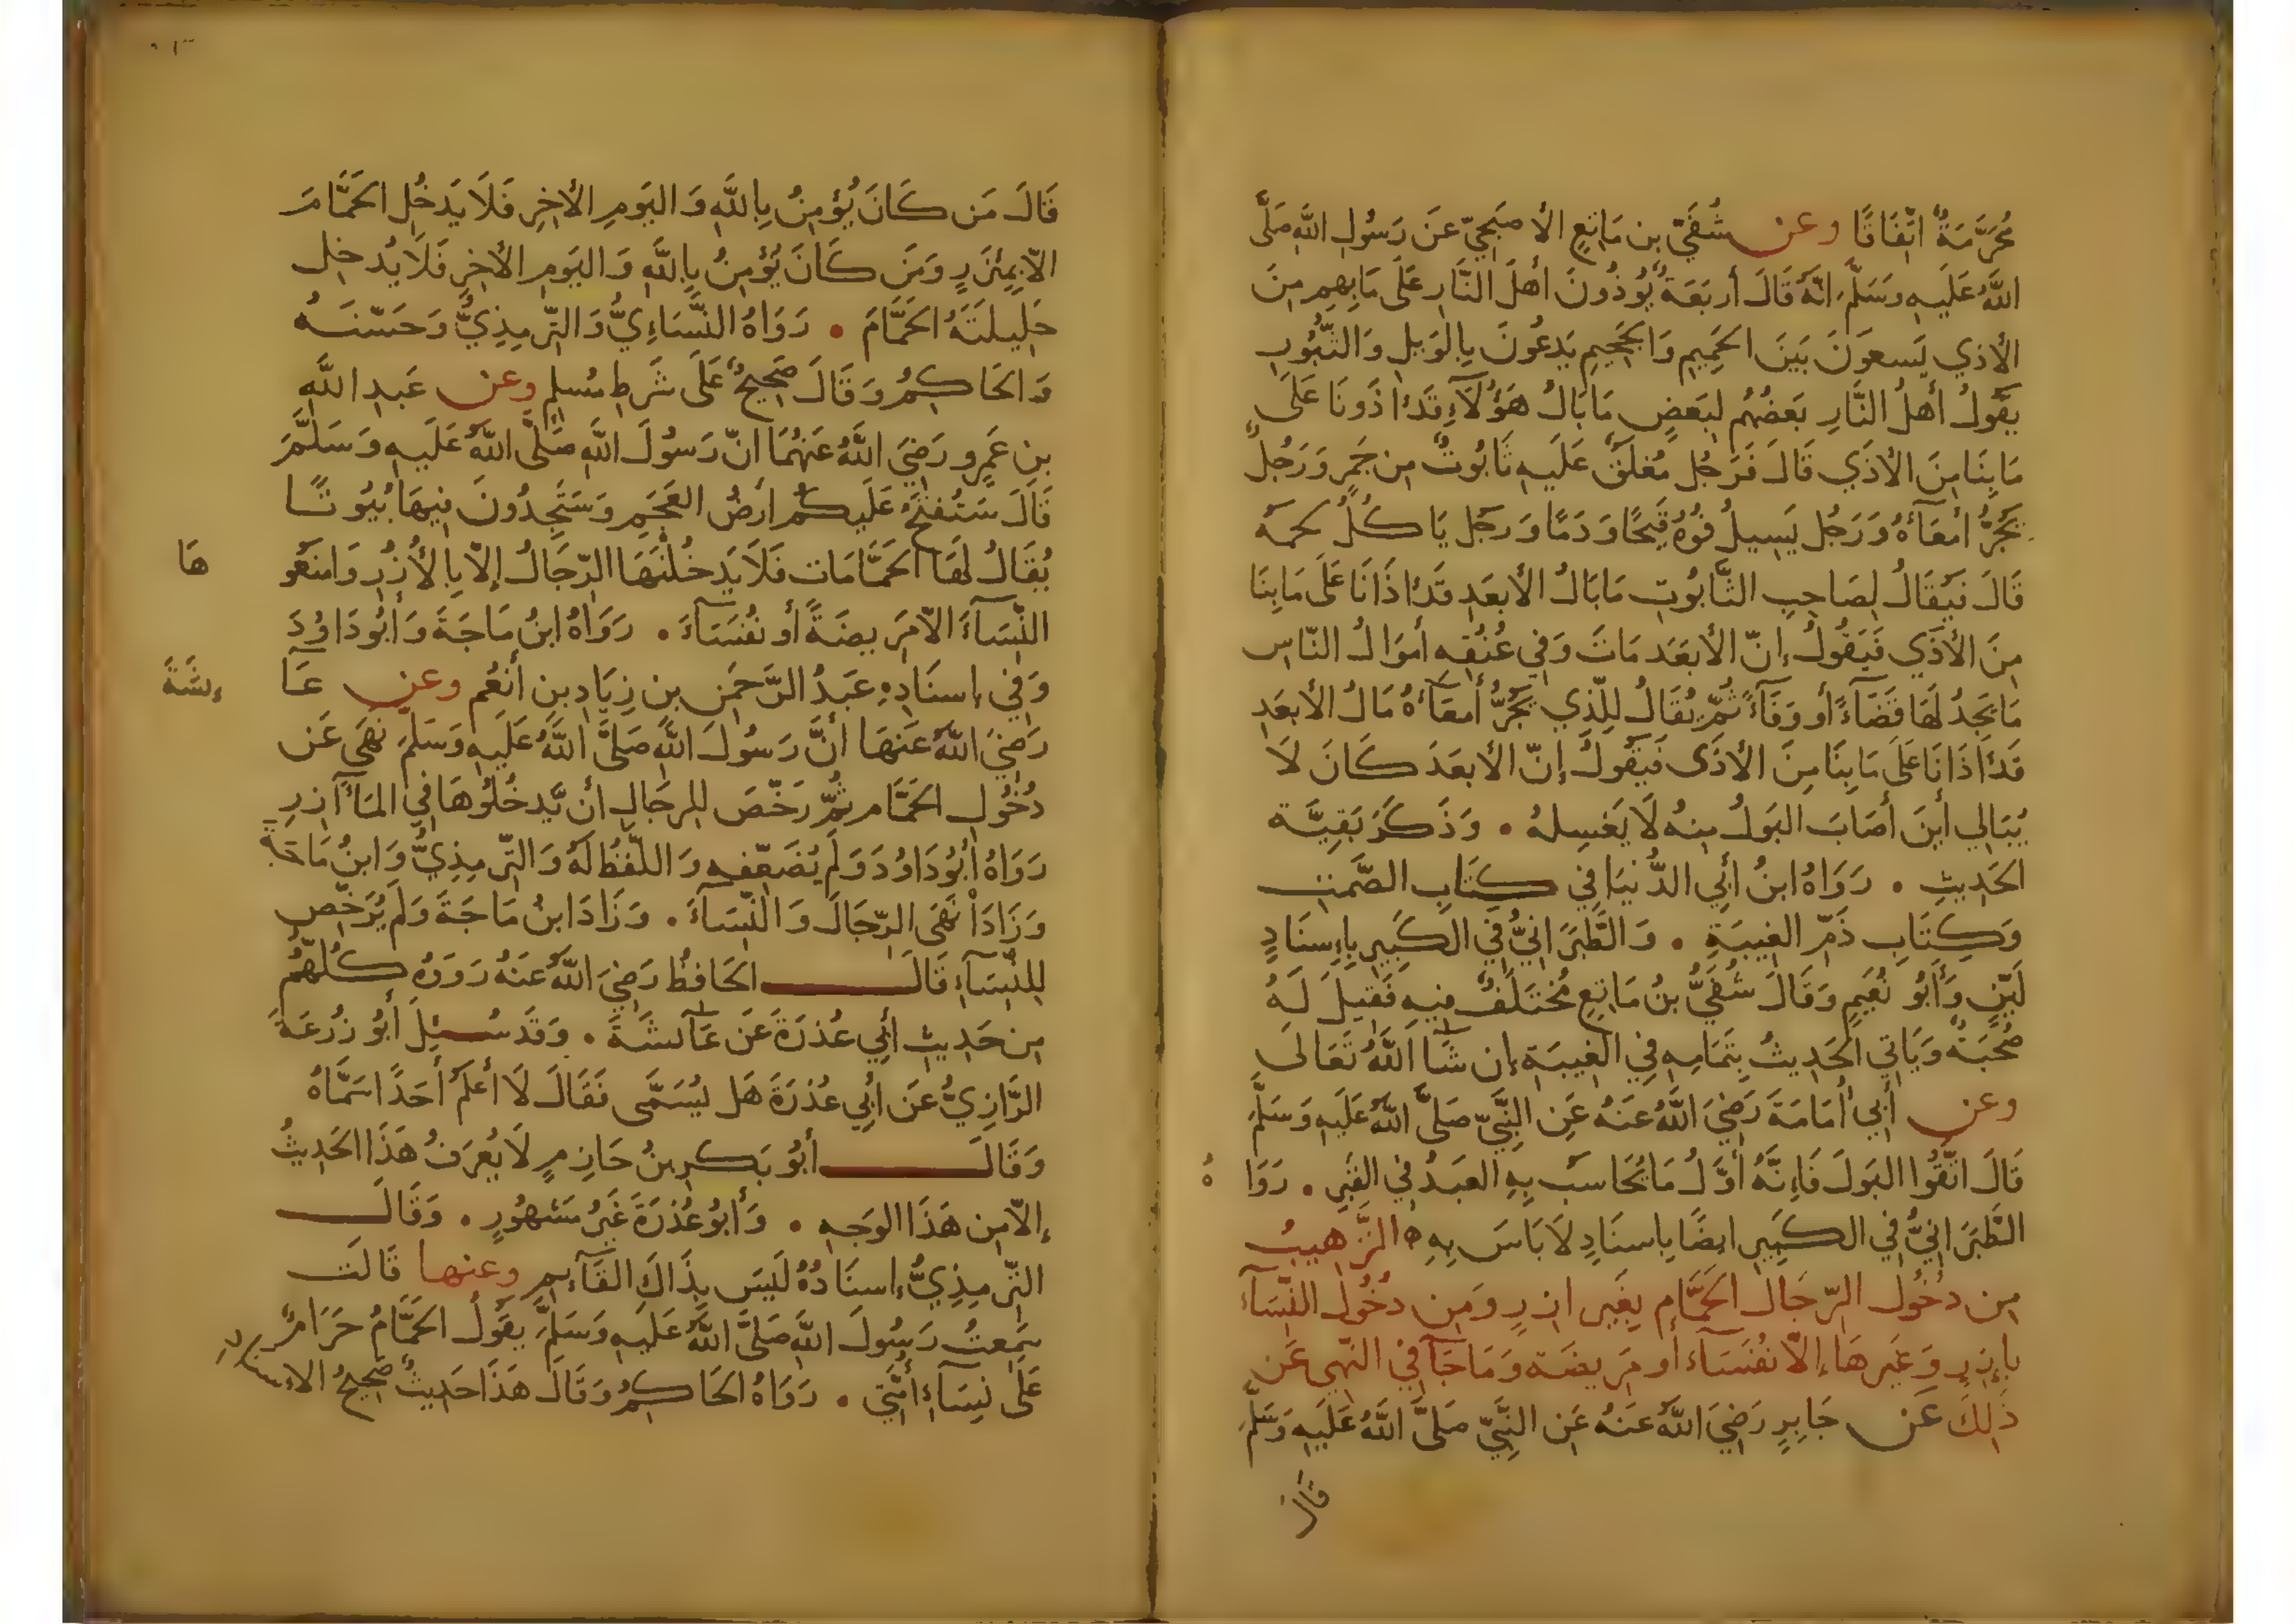 مُحَرَّمَةٌ اتِّفَاقًا وعن شُفَيِّ بنِ مَاتِعٍ الأصبَحِيِّ عَن رَسُولِ اللَّهِ صَلَّى
اللَّهُ عَلَيهِ وَسَلَّمَ انَّهُ قَالَ أربَعَةٌ يُؤذُونَ أهلَ النَّارِ عَلَى مَا بِهِم مِنَ
الأذي يَسعَونَ بَينَ الحَمِيمِ وَالجَحِيمِ يَدعُونَ بِالوَيلِ وَالثُّبُورِ
يَقُولُ أهلُ النَّارِ بَعضُهُم لِبَعضٍ مَا بَالُ هَؤُلَآءِ قَد اذَونَا عَلَى
مَا بِنَا مِنَ الأذَي قَالَ فَرَجُل مُغلَقٌ عَلَيهِ تَابُوتٌ مِن جَمرٍ وَرَجُلٌ
يَجُرُّ أمعَآءَهُ وَرَجُل يَسِيلُ فُوهُ قَيحًا وَدَمًا وَرَجُل يَاكُلُ لَحمَهُ
قَالَ فَيُقَالُ لِصَاحِبِ التَّابُوتِ مَا بَالُ الأبعَدِ قَد اذَانَا عَلَى مَا بِنَا
مِنَ الأذَي فَيَقُولُ إنّ الأبعَدَ مَاتَ وَفِي عُنُقِهِ أموَالُ النّاسِ
مَا يَجِدُ لَهَا قَضَآءً أو وَفَآءً ثُمَّ يُقَالُ لِلَّذِي يَجُرُّ أمعَآءَهُ مَا بَالُ الأبعَدِ
قَد اذَانَا عَلَى مَا بِنَا مِنَ الأذَى فَيَقُولُ إنّ الأبعَدَ كَانَ لَا
يُبَالِي أينَ أصَابَ البَولُ مِنهُ لَا يَغسِلهُ . وَذَكَرَ بَقِيَّةَ
الحَدِيثِ . رَوَاهُ ابنُ أبِي الدُّنيَا فِي كِتَابِ الصَّمتِ
وَكِتَابِ ذَمِّ الغِيبَةِ . وَالطَّبَرَانِيُّ فِي الكَبِيرِ بِإسنَادٍ
لَيِّنٍ وَأبُو نُعَيمٍ وَقَالَ شُفَيُّ بنُ مَاتِعٍ مُختَلَفٌ فِيهِ فَقِيلَ لَهُ
صُحبَةٌ وَيَاتِي الحَدِيثُ بِتَمَامِهِ فِي الغِيبَةِ إن شَآ اللَّهُ تَعَالَى
وعن أبِي أُمَامَةَ رَضِيَ اللَّهُ عَنهُ عَنِ النَّبِيِّ صَلَّى اللَّهُ عَلَيهِ وَسَلَّمَ
قَالَ اتَّقُوا البَولَ فَإنَّهُ أوَّلُ مَا يُحَاسَبُ بِهِ العَبدُ فِي القَبرِ . رَوَاهُ
الطَّبَرَانِيُّ فِي الكَبِيرِ ايضًا بِاسنَادٍ لَا بَاسَ بِهِ ه التَّرهِيبُ
مِن دُخُولِ الرِّجَالِ الحَمَّامِ بِغَيرِ ازرٍ وَمِن دُخُولِ النِّسَآءِ
بِإزرٍ وَغَيرِهَا إلّا نُفَسَآءَ أو مَرِيضَة وَمَا جَآ فِي النَّهيِ عَن
ذَلِكَ عَن جَابِرٍ رَضِيَ اللَّهُ عَنهُ عَنِ النَّبِيِّ صَلَّى اللَّهُ عَلَيهِ وَسَلَّمَ
قَالَ
قَالَ مَن كَانَ يُؤمِنُ بِاللَّهِ وَاليَومِ الأخِرِ فَلَا يَدخُلِ الحَمَّامَ
الّا بِمِئزَرٍ وَمَن كَانَ يُؤمِنُ بِاللَّهِ وَاليَومِ الأخِرِ فَلَا يُدخِل
حَلِيلَتَهُ الحَمَّامَ . رَوَاهُ النَّسَاءِيُّ وَالتِّرمِذِيُّ وَحَسّنَهُ
وَالحَاكِمُ وَقَالَ صَحِيحٌ عَلَى شَرطِ مُسلِمٍ وعن عَبدِ اللَّهِ
بنِ عَمرٍو رَضِيَ اللَّهُ عَنهُمَا انّ رَسُولَ اللَّهِ صَلَّى اللَّهُ عَلَيهِ وَسَلَّمَ
قَالَ سَتُفتَحُ عَلَيكُم ارضُ العَجَمِ وَسَتَجِدُونَ فِيهَا بُيُوتًا
يُقَالُ لَهَا الحَمَّامَات فَلَا يَدخُلَنّهَا الرِّجَالُ إلّا بِالأُزُرِ وَامنَعُوهَا
النِّسَآءَ الّا مَرِيضَةً أو نُفَسَآءَ . رَوَاهُ ابنُ مَاجَةَ وَأبُو دَاوُدَ
وَفِي إسنَادِهِ عَبدُ الرَّحمَنِ بنِ زِيَادِ بنِ أنعُمٍ وعن عَآئِشَةَ
رَضِيَ اللَّهُ عَنهَا أنَّ رَسُولَ اللَّهِ صَلَّى اللَّهُ عَلَيهِ وَسَلَّمَ نَهَى عَن
دُخُولِ الحَمَّامِ ثُمَّ رَخَّصَ لِلرِجَالِ أن يَّدخُلُوهَا فِي المَآزِرِ
رَوَاهُ أبُو دَاوُدَ وَلَم يُضَعِّفهِ وَاللَّفظُ لَهُ وَالتِّرمِذِيُّ وَابنُ مَاجَةَ
وَزَادَا نَهَى الرِّجَالَ وَالنِّسَآءَ . وَزَادَ ابنُ مَاجَةَ وَلَم يُرَخِّص
لِلنِّسَآءِ قَالَ الحَافِظُ رَضِيَ اللَّهُ عَنهُ رَوَوهُ كُلُّهُم
مِن حَدِيثِ أبِي عُذرَةَ عَن عَآئشَةَ . وَقَد سُئِلَ أبُو زُرعَةَ
الرَّازِيُّ عَن أبِي عُذرَةَ هَل يُسَمَّى فَقَالَ لَا أعلَمُ أحَدًا سَمَّاهُ
وَقَالَ أبُو بَكرِ بنُ حَازِمٍ لَا يُعرَفُ هَذَا الحَدِيثُ
إلّا مِن هَذَا الوَجهِ . وَأبُو عُذرَةَ غَيرُ مَشهُورٍ . وَقَالَ
التِّرمِذِيُّ إسنَادُهُ لَيسَ بِذَاكَ القَآئِمِ وعنها قَالَت
سَمِعتُ رَسُولَ اللَّهِ صَلَّى اللَّهُ عَلَيهِ وَسَلَّمَ يَقُولُ الحَمَّامُ حَرَامٌ
عَلَى نِسَآءِ أُمَّتِي . رَوَاهُ الحَاكِمُ وَقَالَ هَذَا حَدِيثٌ صَحِيحُ الاسنادِ